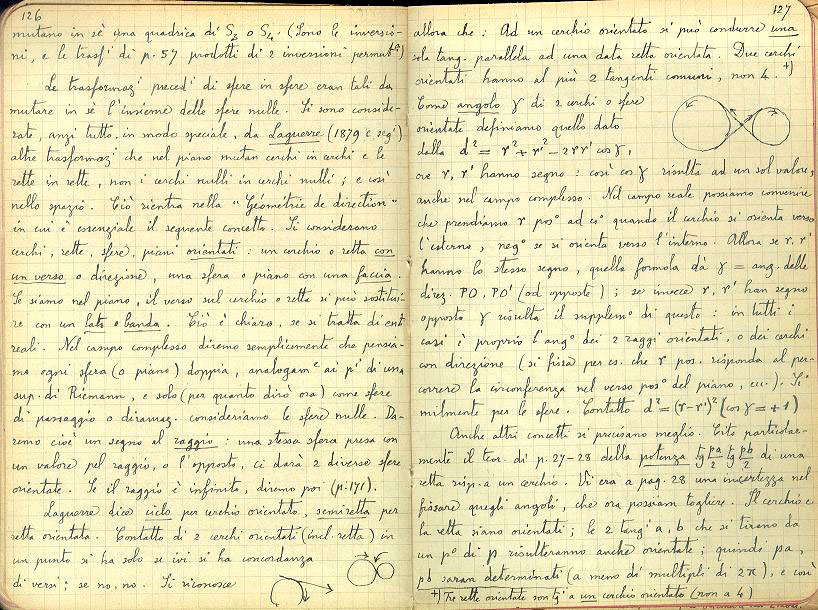 126
mutano in sè una quadrica di S₃ o S₄. (Sono le inversio-
ni, e le trasf¹ di p. 57 prodotti di 2 inversioni permut^li)
Le trasformaz¹ preced¹ di sfere in sfere eran tali da
mutare in sè l'insieme delle sfere nulle. Si sono conside-
rate, anzi tutto, in modo speciale, da Laguerre (1879 e seg¹)
altre trasformaz¹ che nel piano mutan cerchi in cerchi e le
rette in rette, non i cerchi nulli in cerchi nulli; e così
nello spazio. Ciò rientra nella "Géométrie de direction"
in cui è essenziale il seguente concetto. Si considerano
cerchi, rette, sfere, piani orientati: un cerchio o retta con
un verso o direzione, una sfera o piano con una faccia.
Se siamo nel piano, il verso sul cerchio o retta si può sostitui-
re con un lato o banda. Ciò è chiaro, se si tratta di enti
reali. Nel campo complesso diremo semplicemente che pensia-
mo ogni sfera (o piano) doppia, analogam^e ai p¹ di una
sup. di Riemann, e solo (per quanto dirò ora) come sfere
di passaggio o diramaz. consideriamo le sfere nulle. Da-
remo cioè un segno al raggio: una stessa sfera presa con
un valore pel raggio, o l'opposto, ci darà 2 diverse sfere
orientate. Se il raggio è infinito, diremo poi (p. 171).
Laguerre dice ciclo per cerchio orientato, semiretta per
retta orientata. Contatto di 2 cerchi orientati (incl. retta) in
un punto si ha solo se ivi si ha concordanza
di versi; se no, no. Si riconosce
127
allora che: Ad un cerchio orientato si può condurre una
sola tang. parallela ad una data retta orientata. Due cerchi
orientati hanno al più 2 tangenti comuni, non 4. +)
Come angolo γ di 2 cerchi o sfere
orientate definiamo quello dato
dalla d² = r² + r'² − 2rr' cos γ,
ove r, r' hanno segno: così cos γ risulta ad un sol valore,
anche nel campo complesso. Nel campo reale possiamo convenire
che prendiamo r pos° ad es° quando il cerchio si orienta verso
l'esterno, neg° se si orienta verso l'interno. Allora se r, r'
hanno lo stesso segno, quella formola dà γ = ang. delle
direz. PO, PO' (od opposte); se invece r, r' han segno
opposto γ risulta il supplem° di questo: in tutti i
casi è proprio l'ang° dei 2 raggi orientati, o dei cerchi
con direzione (si fissa per es. che r pos. risponda al per-
correre la circonferenza nel verso pos° del piano, ecc.). Si-
milmente per le sfere. Contatto d² = (r − r')² (cos γ = +1)
Anche altri concetti si precisano meglio. Cito particolar-
mente il teor. di p. 27–28 della potenza tg pa/2 tg pb/2 di una
retta risp. a un cerchio. Vi era a pag. 28 una incertezza nel
fissare quegli angoli, che ora possiam togliere. Il cerchio e
la retta siano orientati; le 2 tang¹ a, b che si tirano da
un p° di p risulteranno anche orientate; quindi pa,
pb saran determinati (a meno di multipli di 2π), e così
+) Tre rette orientate son tg¹ a un cerchio orientato (non a 4)